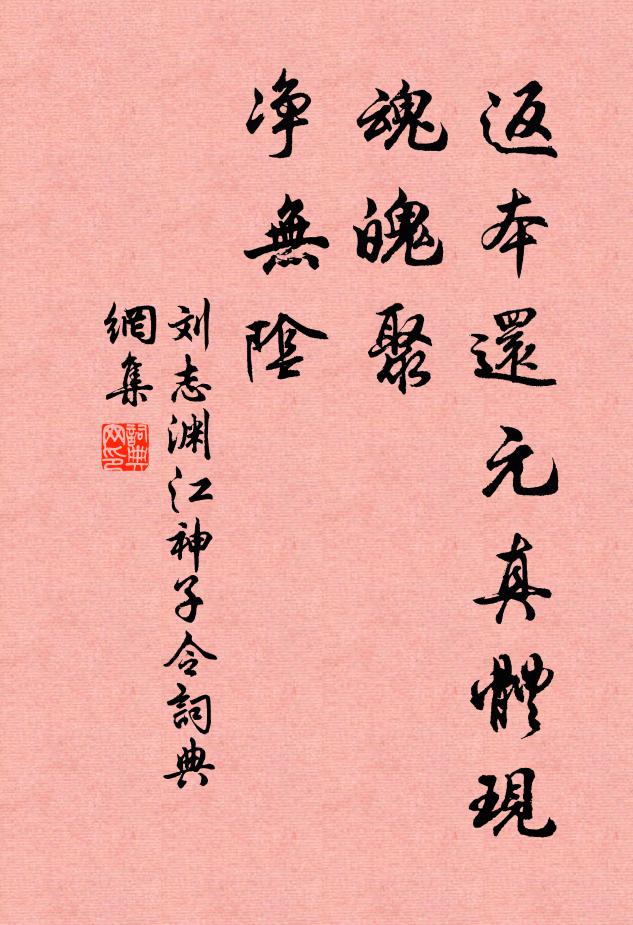 返本還元真體現
魂魄聚
净無陰
刘志渊江神子令詞典
網集
詞典
网印